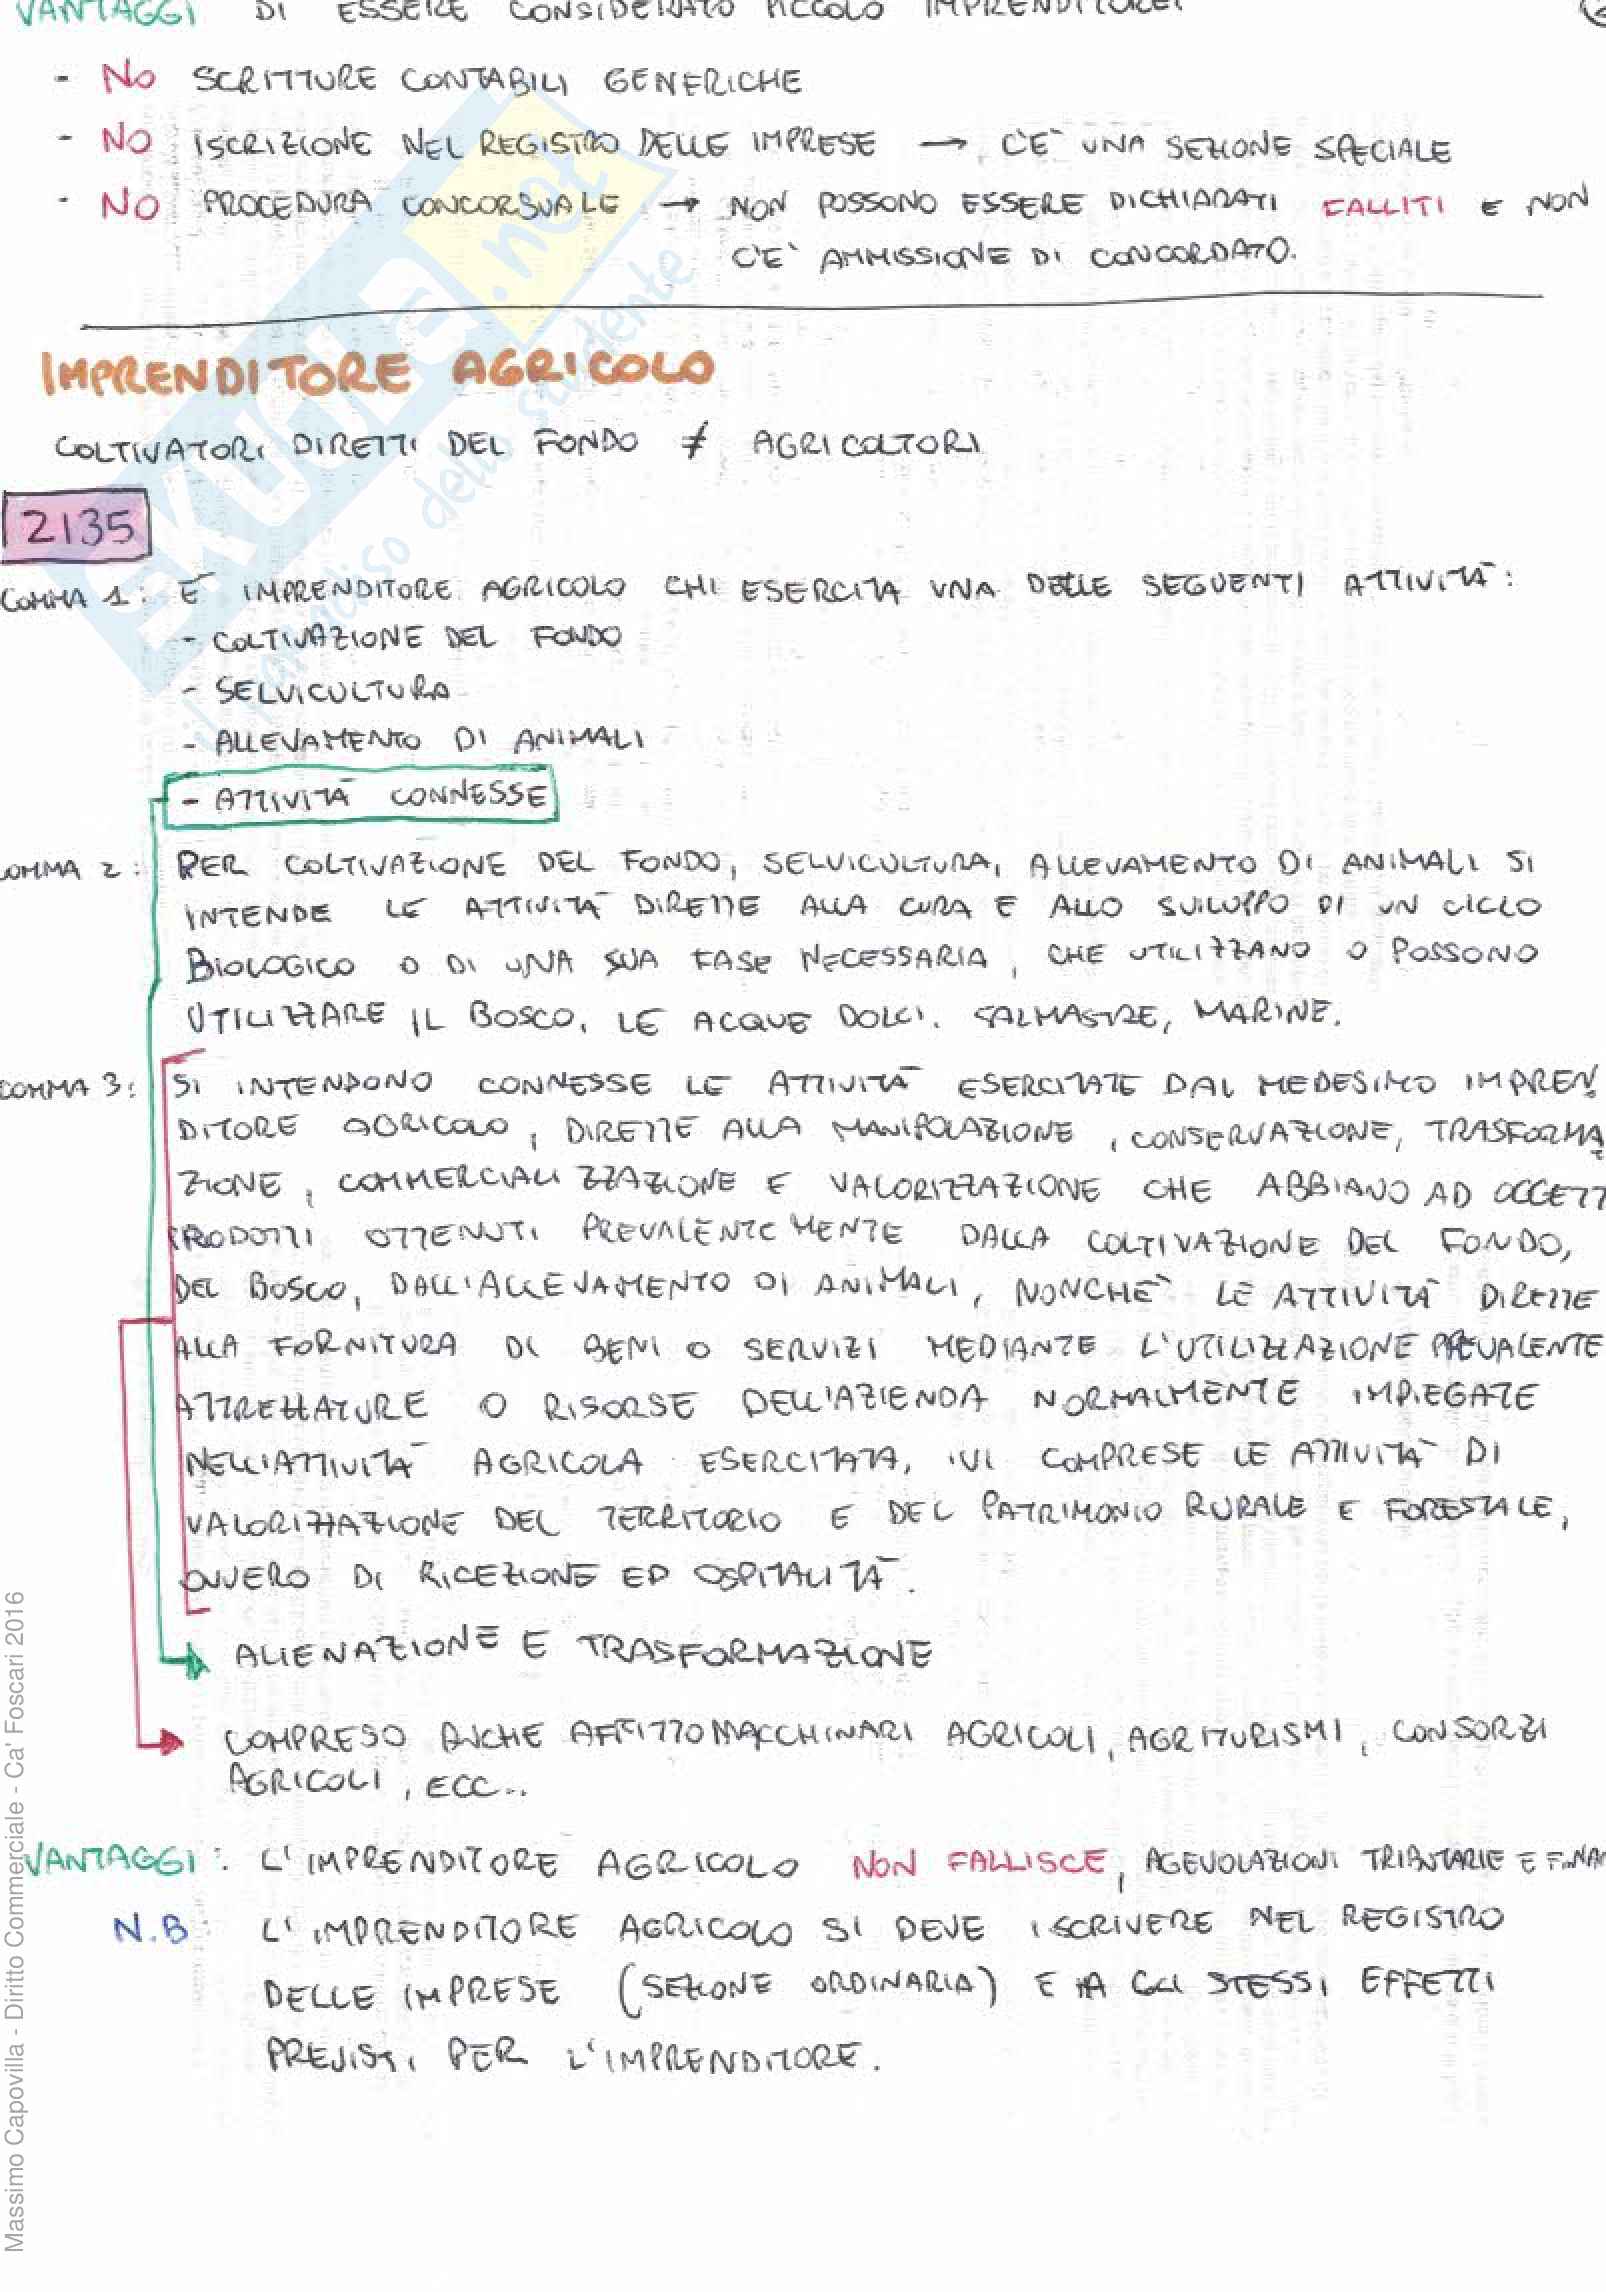 VANTAGGI DI ESSERE CONSIDERATO PICCOLO IMPRENDITORE:
- NO SCRITTURE CONTABILI GENERICHE
- NO ISCRIZIONE NEL REGISTRO DELLE IMPRESE → C'E' UNA SEZIONE SPECIALE
- NO PROCEDURA CONCORSUALE → NON POSSONO ESSERE DICHIARATI FALLITI E NON
C'E' AMMISSIONE DI CONCORDATO.
IMPRENDITORE AGRICOLO
COLTIVATORI DIRETTI DEL FONDO ≠ AGRICOLTORI
2135
COMMA 1: E' IMPRENDITORE AGRICOLO CHI ESERCITA UNA DELLE SEGUENTI ATTIVITA':
- COLTIVAZIONE DEL FONDO
- SELVICULTURA
- ALLEVAMENTO DI ANIMALI
- ATTIVITA' CONNESSE
COMMA 2: PER COLTIVAZIONE DEL FONDO, SELVICULTURA, ALLEVAMENTO DI ANIMALI SI
INTENDE LE ATTIVITA' DIRETTE ALLA CURA E ALLO SVILUPPO DI UN CICLO
BIOLOGICO O DI UNA SUA FASE NECESSARIA, CHE UTILIZZANO O POSSONO
UTILIZZARE IL BOSCO, LE ACQUE DOLCI. SALMASTRE, MARINE.
COMMA 3: SI INTENDONO CONNESSE LE ATTIVITA' ESERCITATE DAL MEDESIMO IMPREN
DITORE AGRICOLO, DIRETTE ALLA MANIPOLAZIONE, CONSERVAZIONE, TRASFORMA
ZIONE, COMMERCIALIZZAZIONE E VALORIZZAZIONE CHE ABBIANO AD OGGETT
PRODOTTI OTTENUTI PREVALENTEMENTE DALLA COLTIVAZIONE DEL FONDO,
DEL BOSCO, DALL'ALLEVAMENTO DI ANIMALI, NONCHE' LE ATTIVITA' DIRETTE
ALLA FORNITURA DI BENI O SERVIZI MEDIANTE L'UTILIZZAZIONE PREVALENTE
ATTREZZATURE O RISORSE DELL'AZIENDA NORMALMENTE IMPIEGATE
NELL'ATTIVITA' AGRICOLA ESERCITATA, IVI COMPRESE LE ATTIVITA' DI
VALORIZZAZIONE DEL TERRITORIO E DEL PATRIMONIO RURALE E FORESTALE,
OVVERO DI RICEZIONE ED OSPITALITA'.
ALIENAZIONE E TRASFORMAZIONE
COMPRESO ANCHE AFFITTO MACCHINARI AGRICOLI, AGRITURISMI, CONSORZI
AGRICOLI, ECC...
VANTAGGI: L'IMPRENDITORE AGRICOLO NON FALLISCE, AGEVOLAZIONI TRIBUTARIE E FINAN
N.B: L'IMPRENDITORE AGRICOLO SI DEVE ISCRIVERE NEL REGISTRO
DELLE IMPRESE (SEZIONE ORDINARIA) E HA GLI STESSI EFFETTI
PREVISTI PER L'IMPRENDITORE.
SKUOLA.net
il paradiso dello studente
Massimo Capovilla - Diritto Commerciale - Ca' Foscari 2016